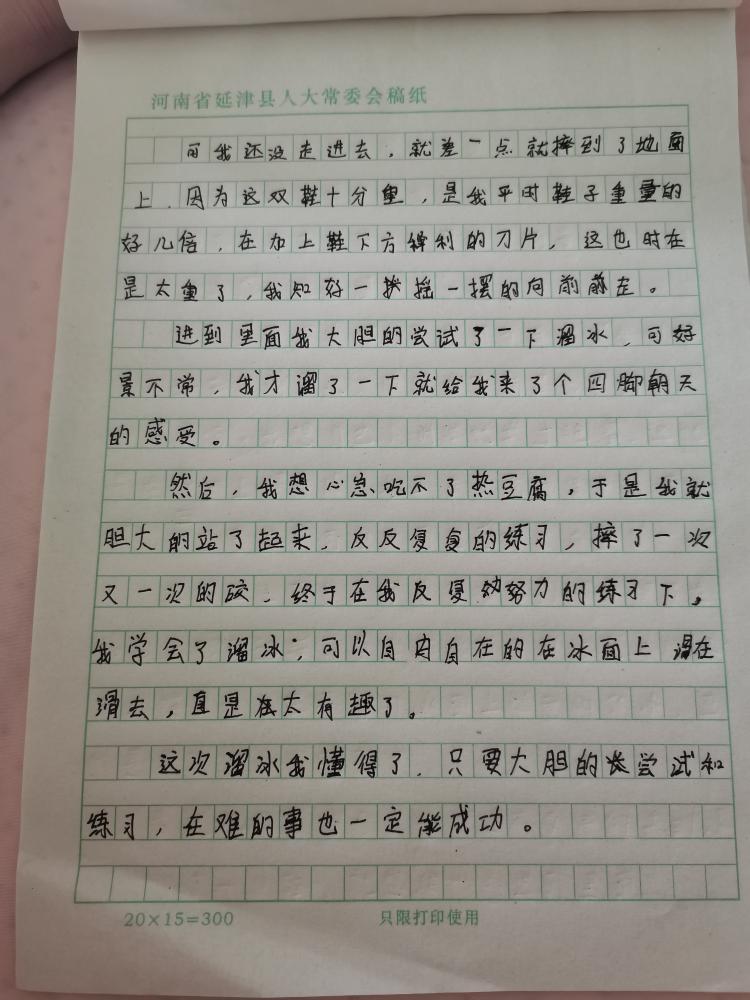 河南省延津县人大常委会稿纸
可我还没走进去，就差一点就摔到了地面
上，因为这双鞋十分重，是我平时鞋子重量的
好几倍，在加上鞋下方锋利的刀片，这也时在
是太重了，我知好一挨摇一摆的向前前走。
进到里面我大胆的尝试了一下溜冰，可好
景不常，我才溜了一下就给我来了个四脚朝天
的感受。
然后，我想心急吃不了热豆腐，于是我就
胆大的站了起来，反反复复的练习，摔了一次
又一次的跤，终于在我反复努力的练习下，
我学会了溜冰，可以自由自在的在冰面上滑在
滑去，直是在太有趣了。
这次溜冰我懂得了，只要大胆的尝试和
练习，在难的事也一定能成功。
20×15=300 只限打印使用